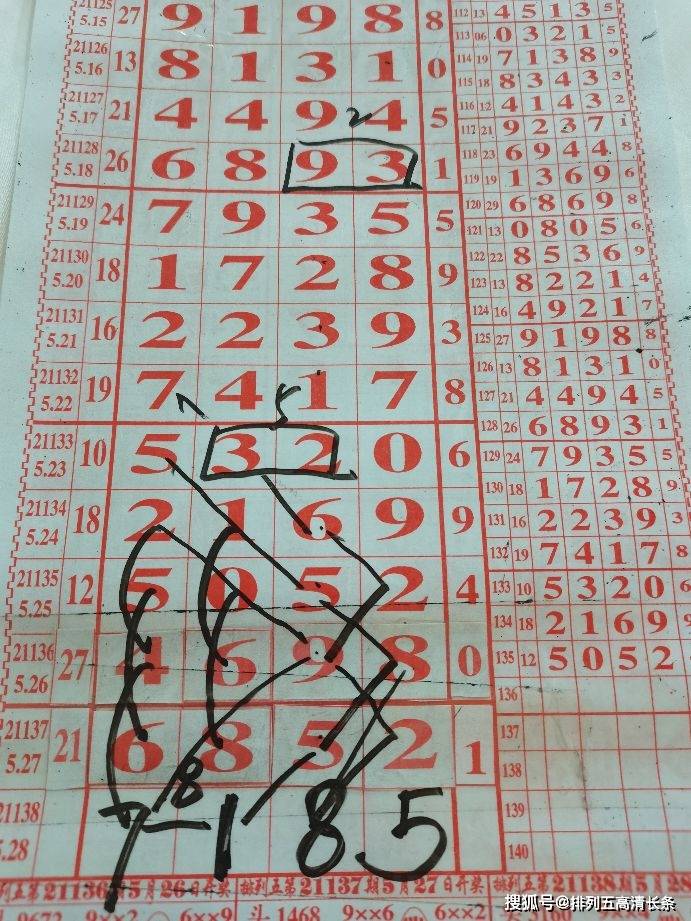 21125 5.15 27 9 1 9 8 8
21126 5.16 13 8 1 3 1 0
21127 5.17 21 4 4 9 4 5
2
21128 5.18 26 6 8 9 3 1
21129 5.19 24 7 9 3 5 5
21130 5.20 18 1 7 2 8 9
21131 5.21 16 2 2 3 9 3
21132 5.22 19 7 4 1 7 8
5
21133 5.23 10 5 3 2 0 6
21134 5.24 18 2 1 6 9 9
21135 5.25 12 5 0 5 2 4
21136 5.26 27 4 6 9 8 0
21137 5.27 21 6 8 5 2 1
8
21138 5.28 7 1 8 5
112 13 4 5 1 3 5
113 06 0 3 2 1 5
114 19 7 1 3 8 9
115 18 8 3 4 3 3
116 12 4 1 4 3 2
117 21 9 2 3 7 1
118 23 6 9 4 4 8
119 19 1 3 6 9 6
120 29 6 8 6 9 8
121 13 0 8 0 5 6
122 22 8 5 3 6 9
123 13 8 2 2 1 4
124 16 4 9 2 1 7
125 27 9 1 9 8 8
126 13 8 1 3 1 0
127 21 4 4 9 4 5
128 26 6 8 9 3 1
129 24 7 9 3 5 5
130 18 1 7 2 8 9
131 16 2 2 3 9 3
132 19 7 4 1 7 8
133 10 5 3 2 0 6
134 18 2 1 6 9 9
135 12 5 0 5 2
136
137
138
139
140
列五第21136期5月26日开奖 排列五第21137期5月27日开奖 排列五第21138期5月28
斗 1468 9××8 6××2
搜狐号@排列五高清长条